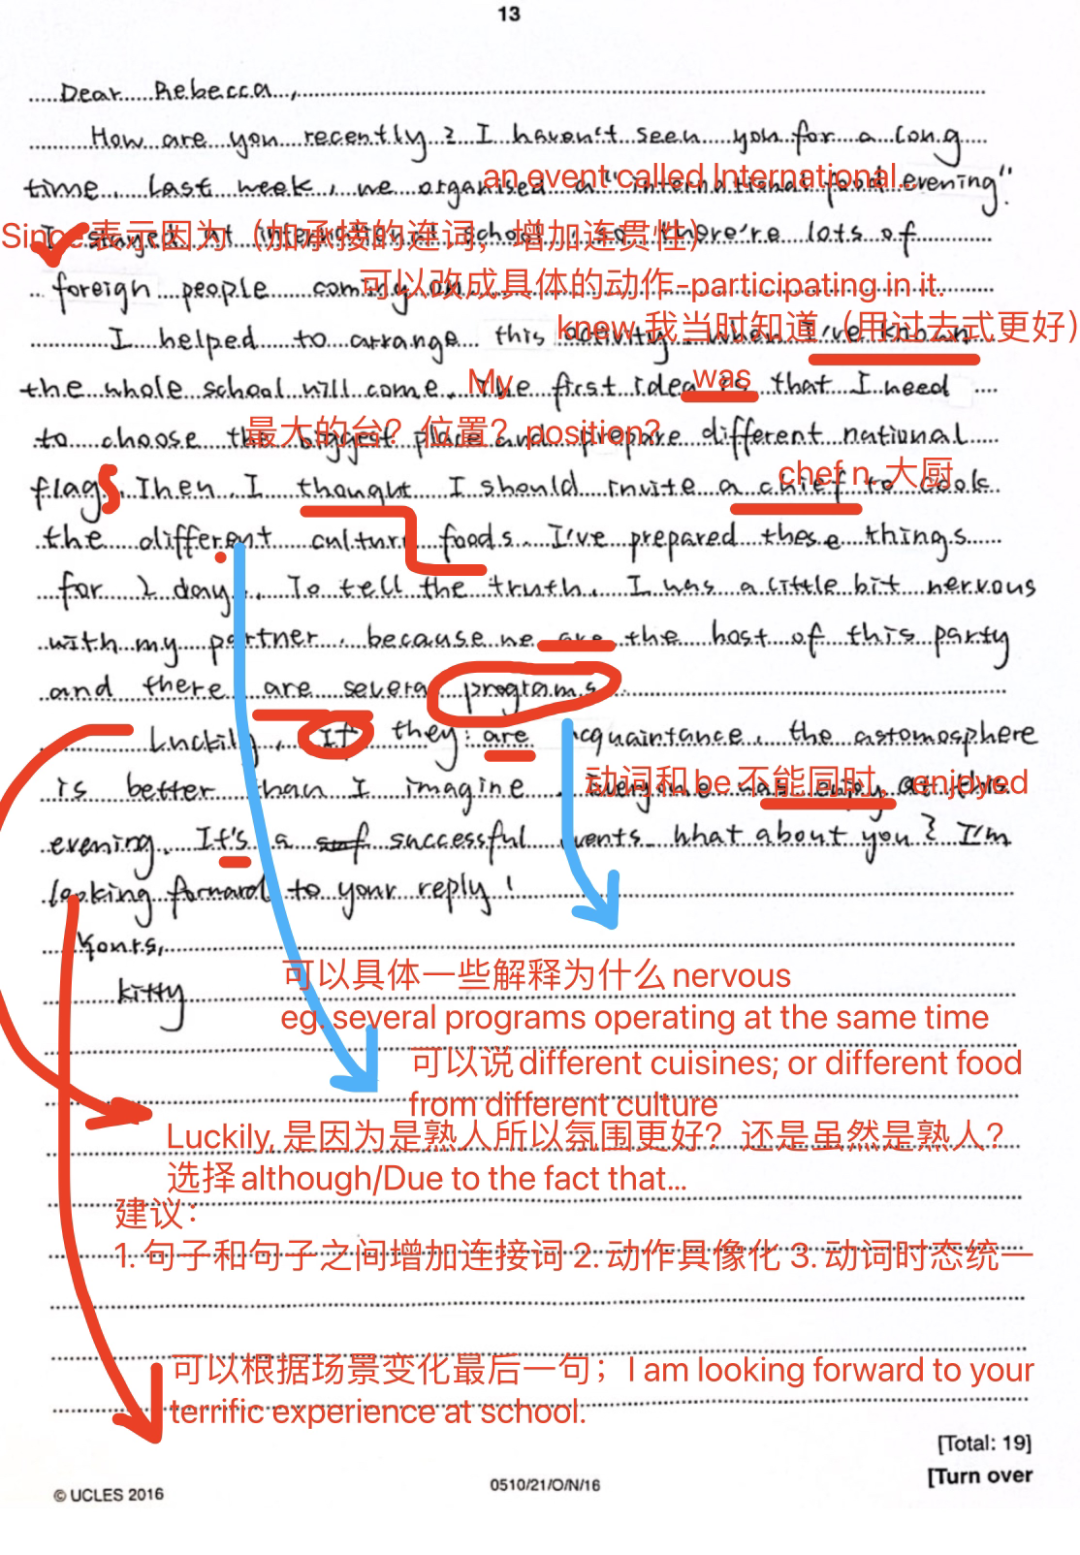 13
Dear Rebecca,
How are you recently? I haven't seen you for a long
an event called International...
time. Last week, we organised a "international food evening".
Since表示因为（加承接的连词，增加连贯性）
I stayed at international school so there're lots of
可以改成具体的动作-participating in it.
foreign people coming on.
knew 我当时知道（用过去式更好）
I helped to arrange this activity when I've known
My was
the whole school will come. The first idea is that I need
最大的台？位置？position?
to choose the biggest place and prepare different national
chef n.大厨
flags. Then, I thought I should invite a chief to cook
the different culture foods. I've prepared these things
for 2 day. To tell the truth, I was a little bit nervous
with my partner, because we are the host of this party
and there are several programs.
Luckily, If they are acquaintance, the astomosphere
动词和be不能同时，enjoyed
is better than I imagine. Everyone was enjoy at this
evening. It's a successful events. What about you? I'm
looking forward to your reply!
Yours,
kitty
可以具体一些解释为什么nervous
eg. several programs operating at the same time
可以说different cuisines; or different food
from different culture
Luckily, 是因为是熟人所以氛围更好？还是虽然是熟人？
选择although/Due to the fact that...
建议：
1. 句子和句子之间增加连接词 2. 动作具像化 3. 动词时态统一
可以根据场景变化最后一句；I am looking forward to your
terrific experience at school.
[Total: 19]
[Turn over
© UCLES 2016
0510/21/O/N/16